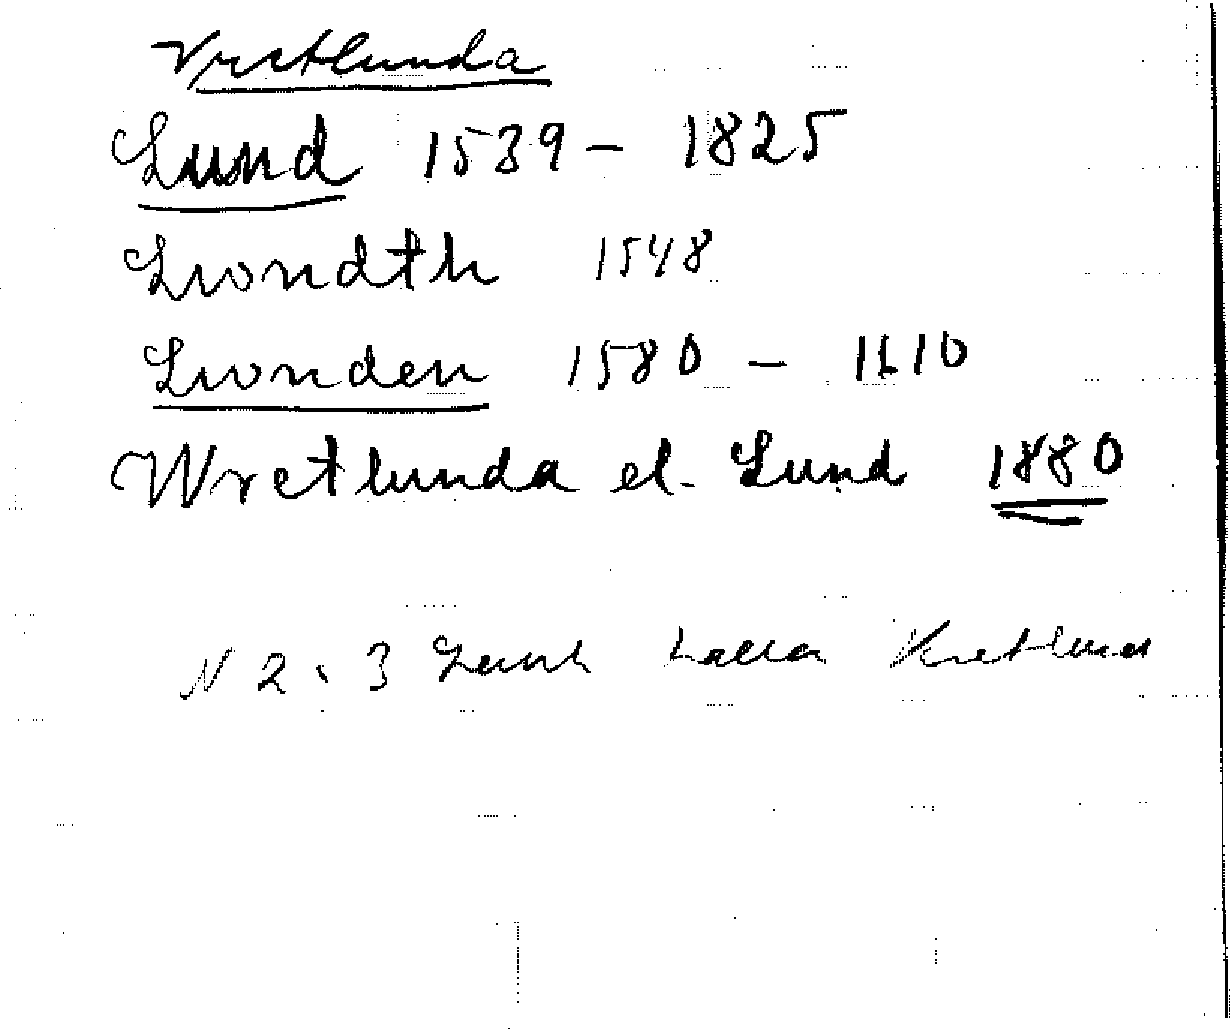 Vretlunda
Lund 1539 - 1825
Lwondth 1548
Lwonden 1580 - 1610
Wretlunda el. Lund 1880
N 2, 3 Lund kallas